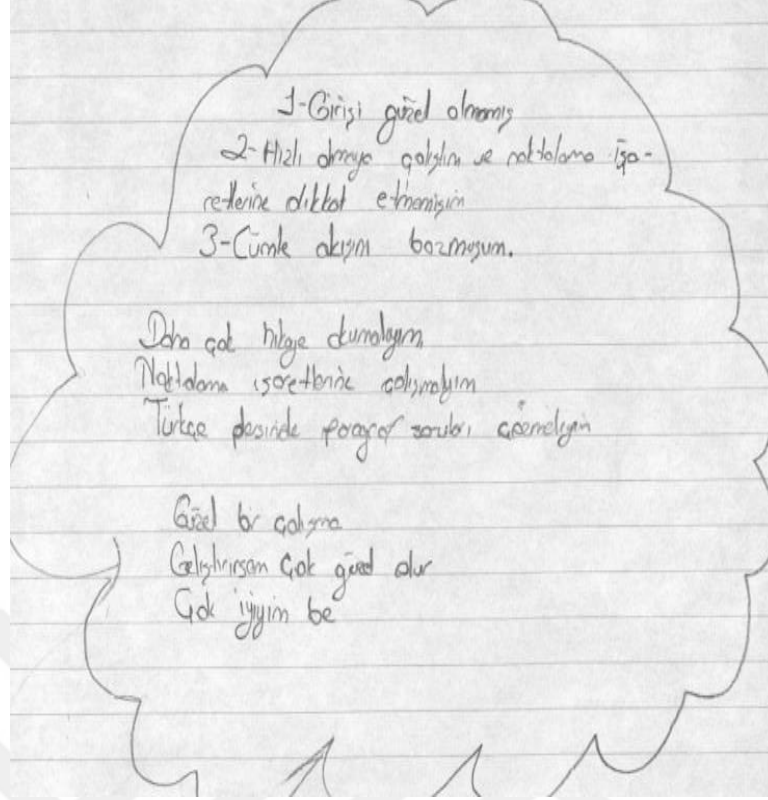 1-Girişi güzel olmamış
2-Hızlı olmaya çalıştım ve noktalama işa-
retlerine dikkat etmemişim
3-Cümle akışını bozmuşum.
Daha çok hikaye okumalıyım,
Noktalama işaretlerine çalışmalıyım
Türkçe dersinde paragraf soruları çözmeliyim
Güzel bir çalışma
Geliştirirsem Çok güzel olur
Çok iyiyim be